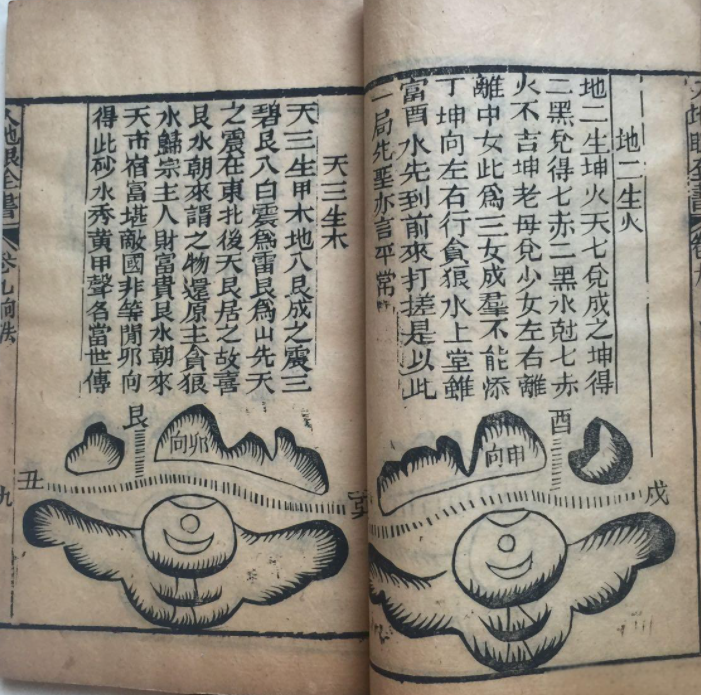 地二生火
地二生坤火天七兌成之坤得
二黑兌得七赤二黑水尅七赤
火不吉坤老母兌少女左右離
離中女此爲三女成羣不能添
丁坤向左右行貪狼水上堂雖
富酉水先到前來打搓是以此
一局先聖亦言平常
酉
申向
戌
天三生木
天三生甲木地八艮成之震三
碧艮八白震爲雷艮爲山先天
之震在東北後天艮居之故喜
艮水朝來謂之物還原主貪狼
水歸宗主人財富貴艮水朝來
天市宿富堪敵國非等閒邪向
得此砂水秀黃甲聲名當世傳
艮
卯向
丑
地眼全書
卷九向法
九